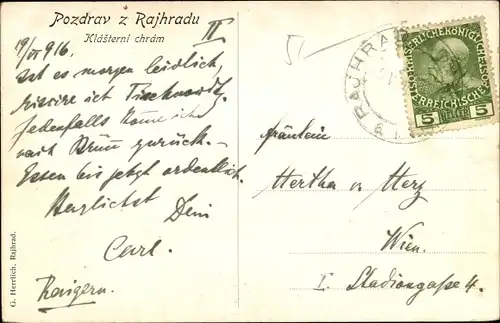 Pozdrav z Rajhradu
Klášterní chrám
II
19/VI 916.
Ist es morgen leidlich,
riskire ich
Jedenfalls komme ich
nach Brünn zurück.
Essen bis jetzt ordentlich.
Herzlichst Dein
Carl.
Raigern.
G. Herrlich, Rajhrad.
RAJHRAD
5 5
Fräulein
Hertha v Herz
Wien.
I. Stadiongasse 4.